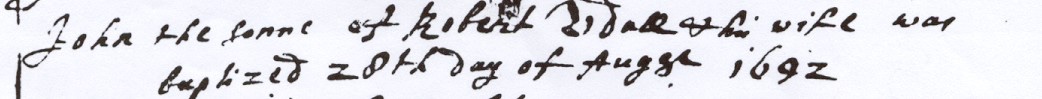 John the sonne of Robert Udall & his wife was
baptized 28th day of Augst 1692